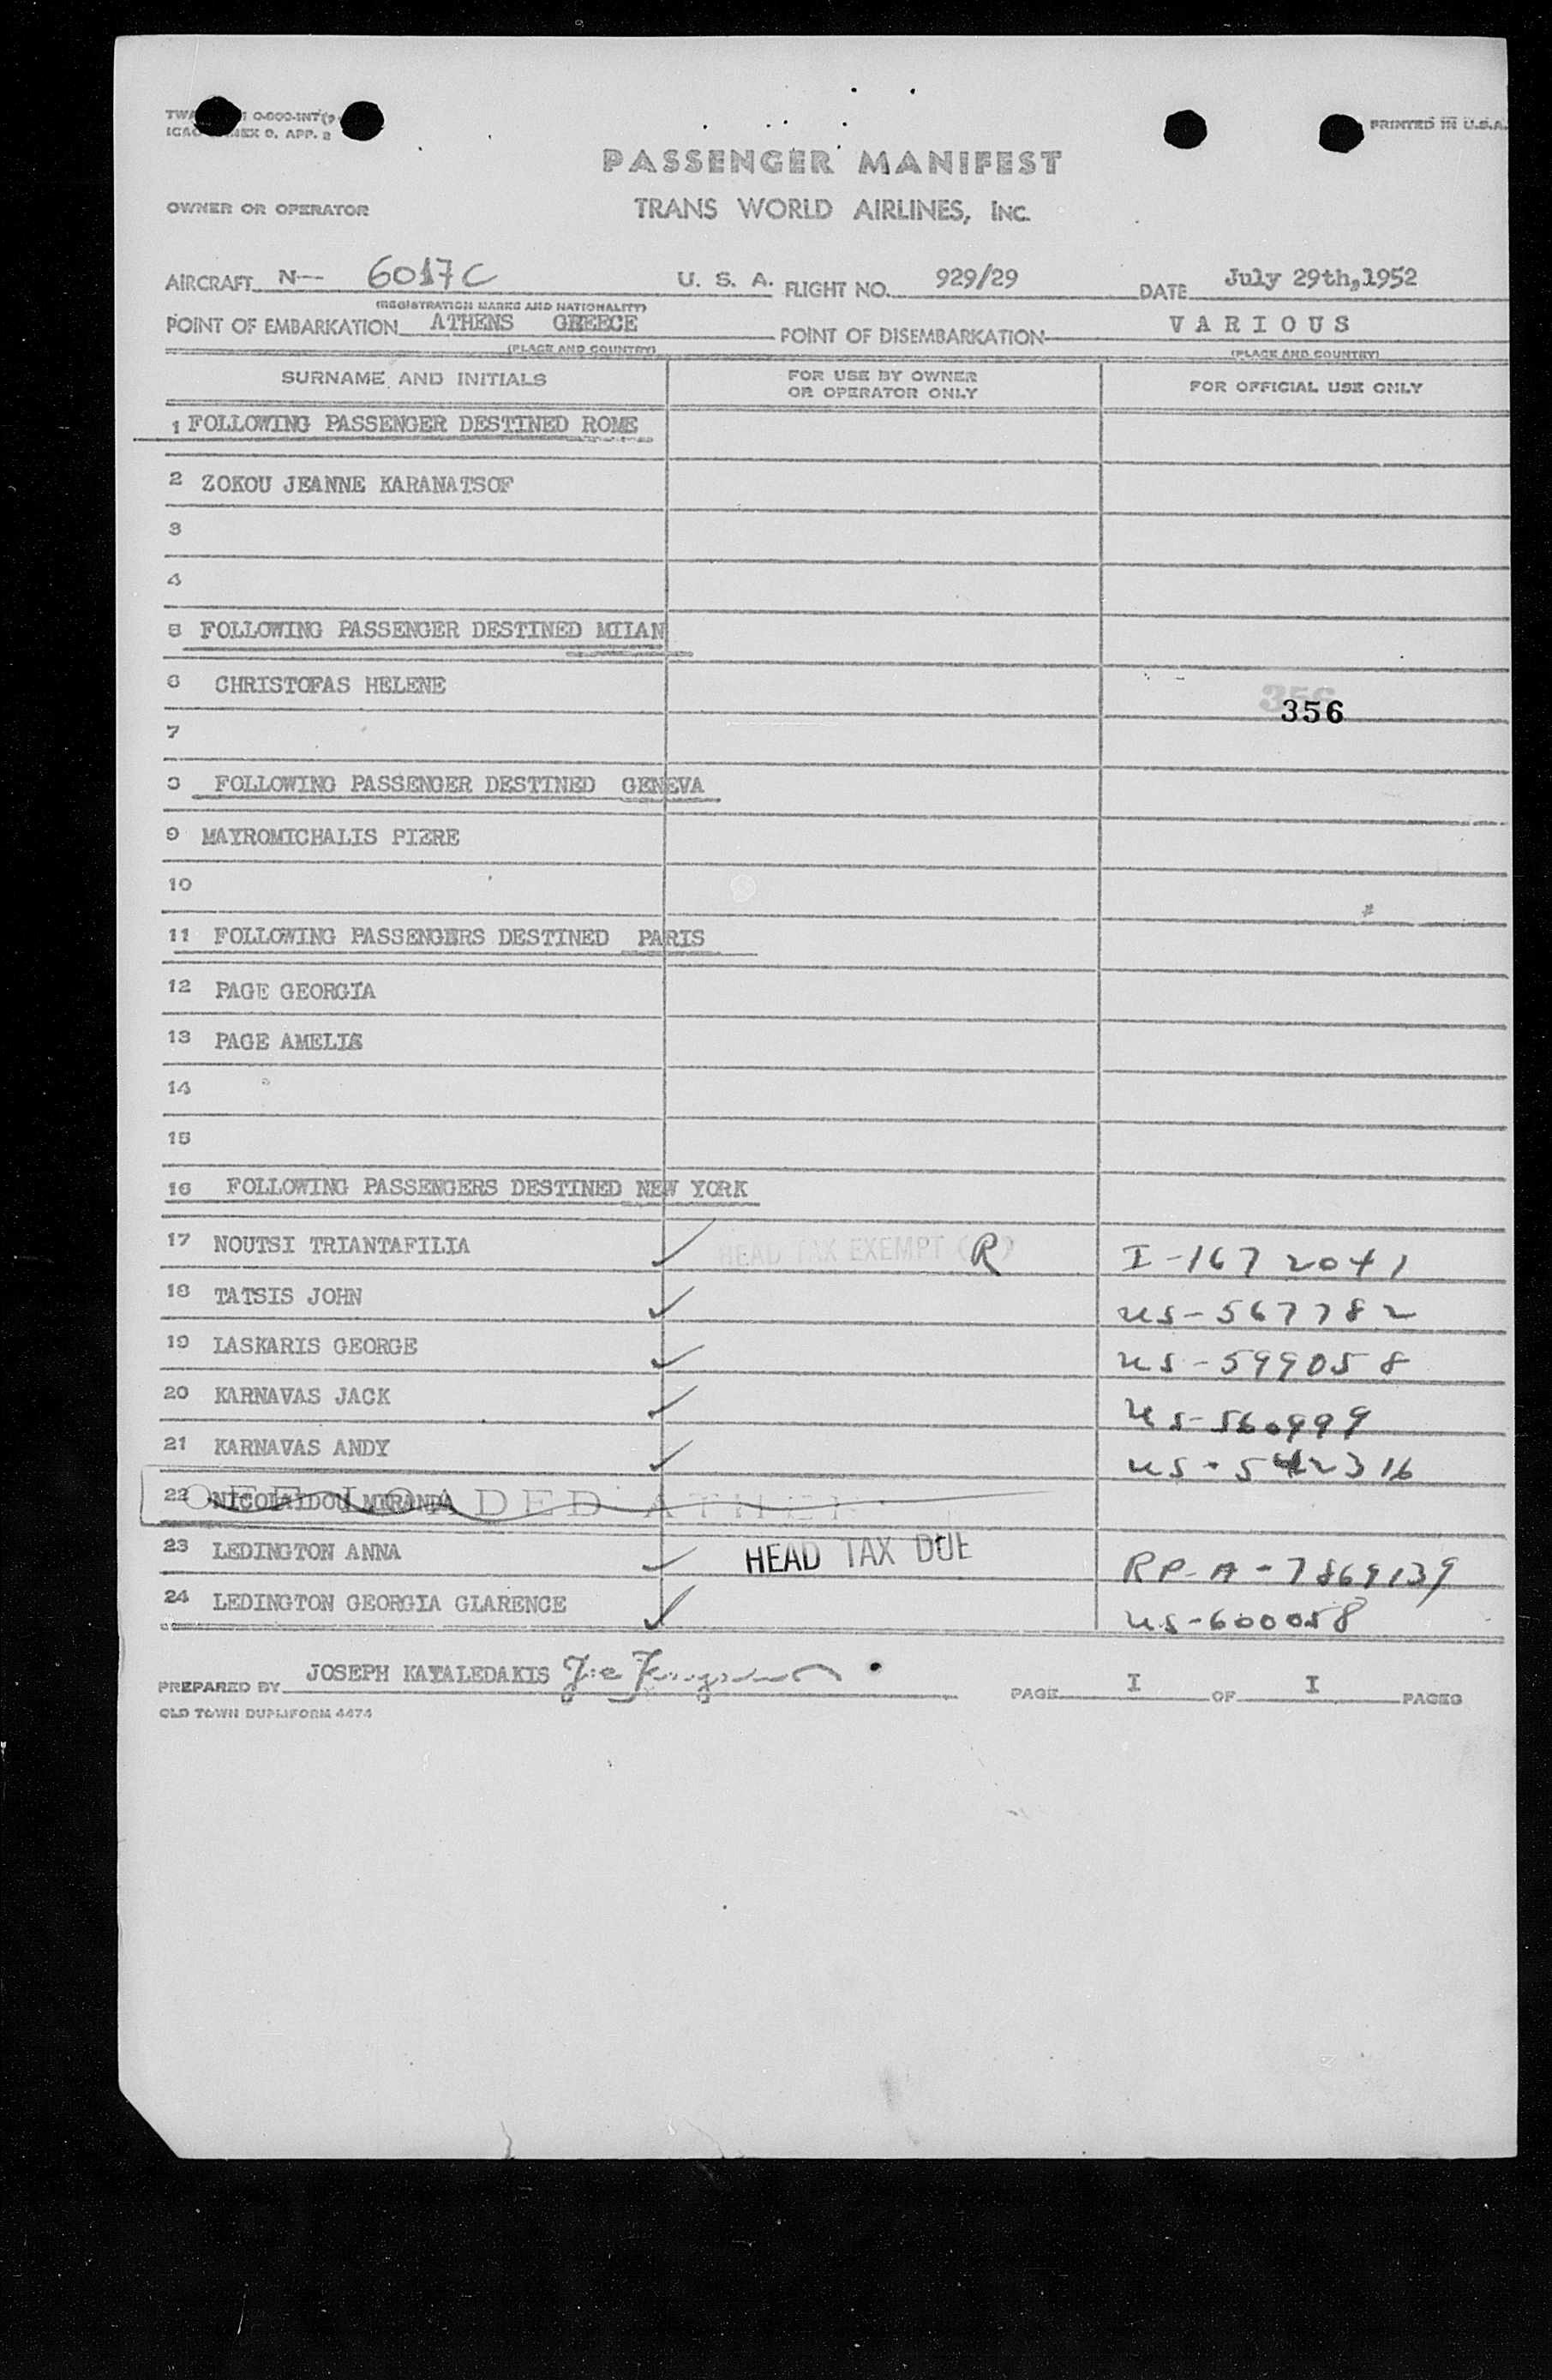 PRINTED IN U.S.A.
PASSENGER MANIFEST
OWNER OR OPERATOR TRANS WORLD AIRLINES, INC.
AIRCRAFT N-- 6017C U. S. A. FLIGHT NO. 929/29 DATE July 29th,1952
(REGISTRATION MARKS AND NATIONALITY)
POINT OF EMBARKATION ATHENS GREECE POINT OF DISEMBARKATION VARIOUS
(PLACE AND COUNTRY) (PLACE AND COUNTRY)
SURNAME AND INITIALS FOR USE BY OWNER OR OPERATOR ONLY FOR OFFICIAL USE ONLY
1 FOLLOWING PASSENGER DESTINED ROME
2 ZOKOU JEANNE KARANATSOF
3
4
5 FOLLOWING PASSENGER DESTINED MIIAN
6 CHRISTOFAS HELENE
356
7
8 FOLLOWING PASSENGER DESTINED GENEVA
9 MAYROMICHALIS PIERE
10
11 FOLLOWING PASSENGERS DESTINED PARIS
12 PAGE GEORGIA
13 PAGE AMELIA
14
15
16 FOLLOWING PASSENGERS DESTINED NEW YORK
17 NOUTSI TRIANTAFILIA ✓ HEAD TAX EXEMPT (R) I-1672041
18 TATSIS JOHN ✓ US-567782
19 LASKARIS GEORGE ✓ US-599058
20 KARNAVAS JACK ✓ US-560999
21 KARNAVAS ANDY ✓ US-542316
22 NICOLAIDOU MIRANDA OFF LOADED ATHEN
23 LEDINGTON ANNA ✓ HEAD TAX DUE RP-A-7869139
24 LEDINGTON GEORGIA GLARENCE ✓ US-600058
PREPARED BY JOSEPH KATALEDAKIS PAGE I OF I PAGES
OLD TOWN DUPLIFORM 4474